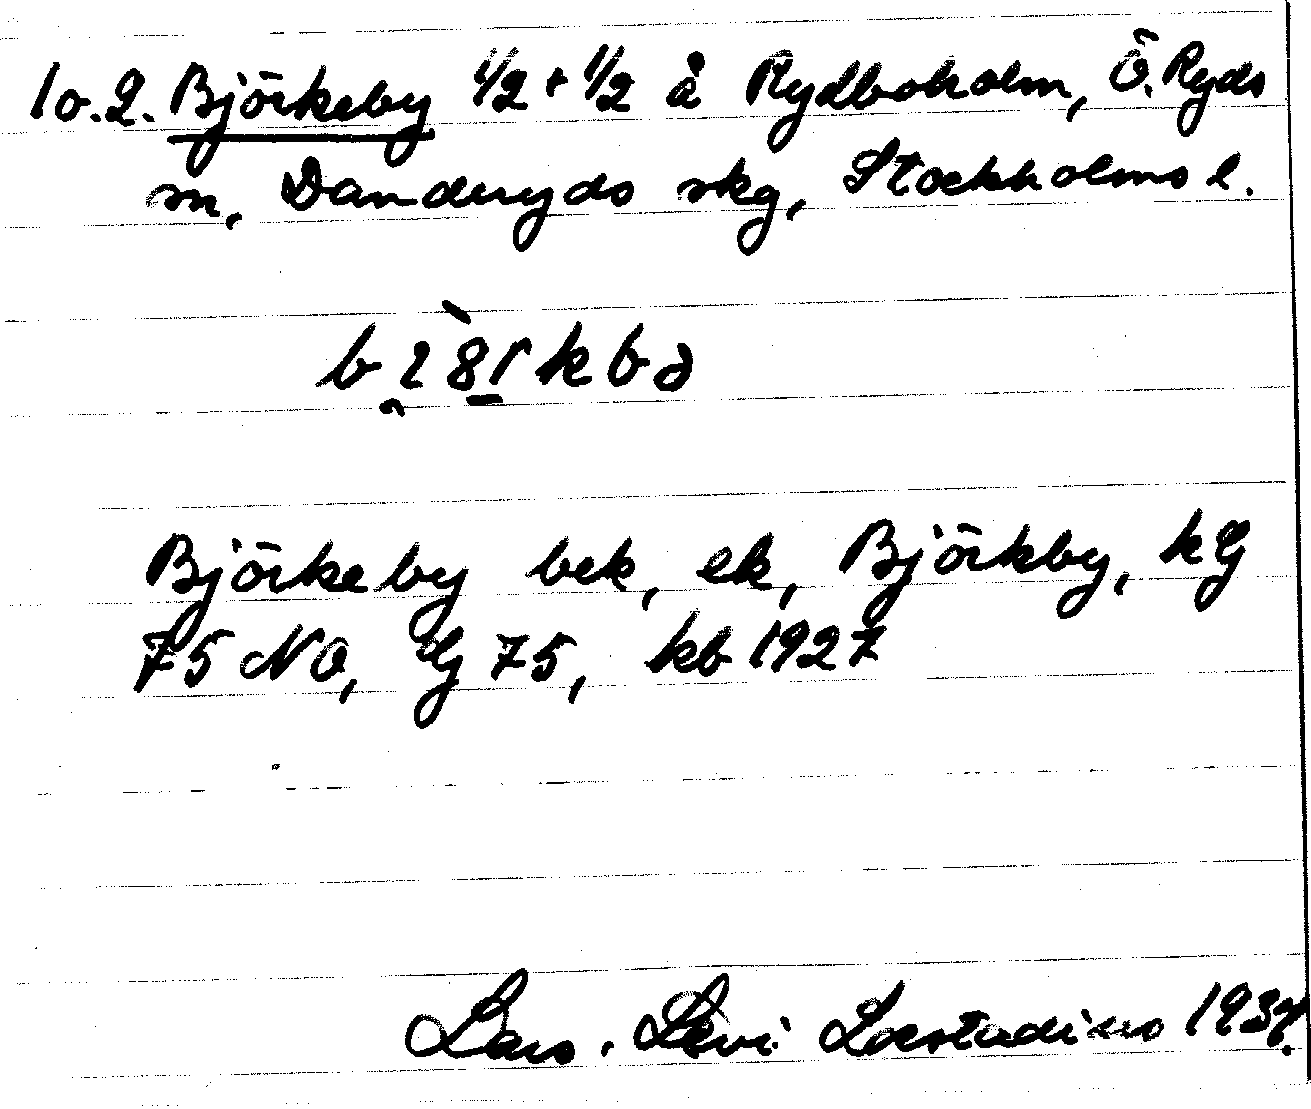 1 o. 2. Björkeby 1/2 + 1/2 å Rydboholm, Ö. Ryds
sn, Danderyds skg, Stockholms l.
Björkeby bek, ek, Björkby, kG
75 NO, G 75, kb 1927
Lars. Levi Læstadius 1937.